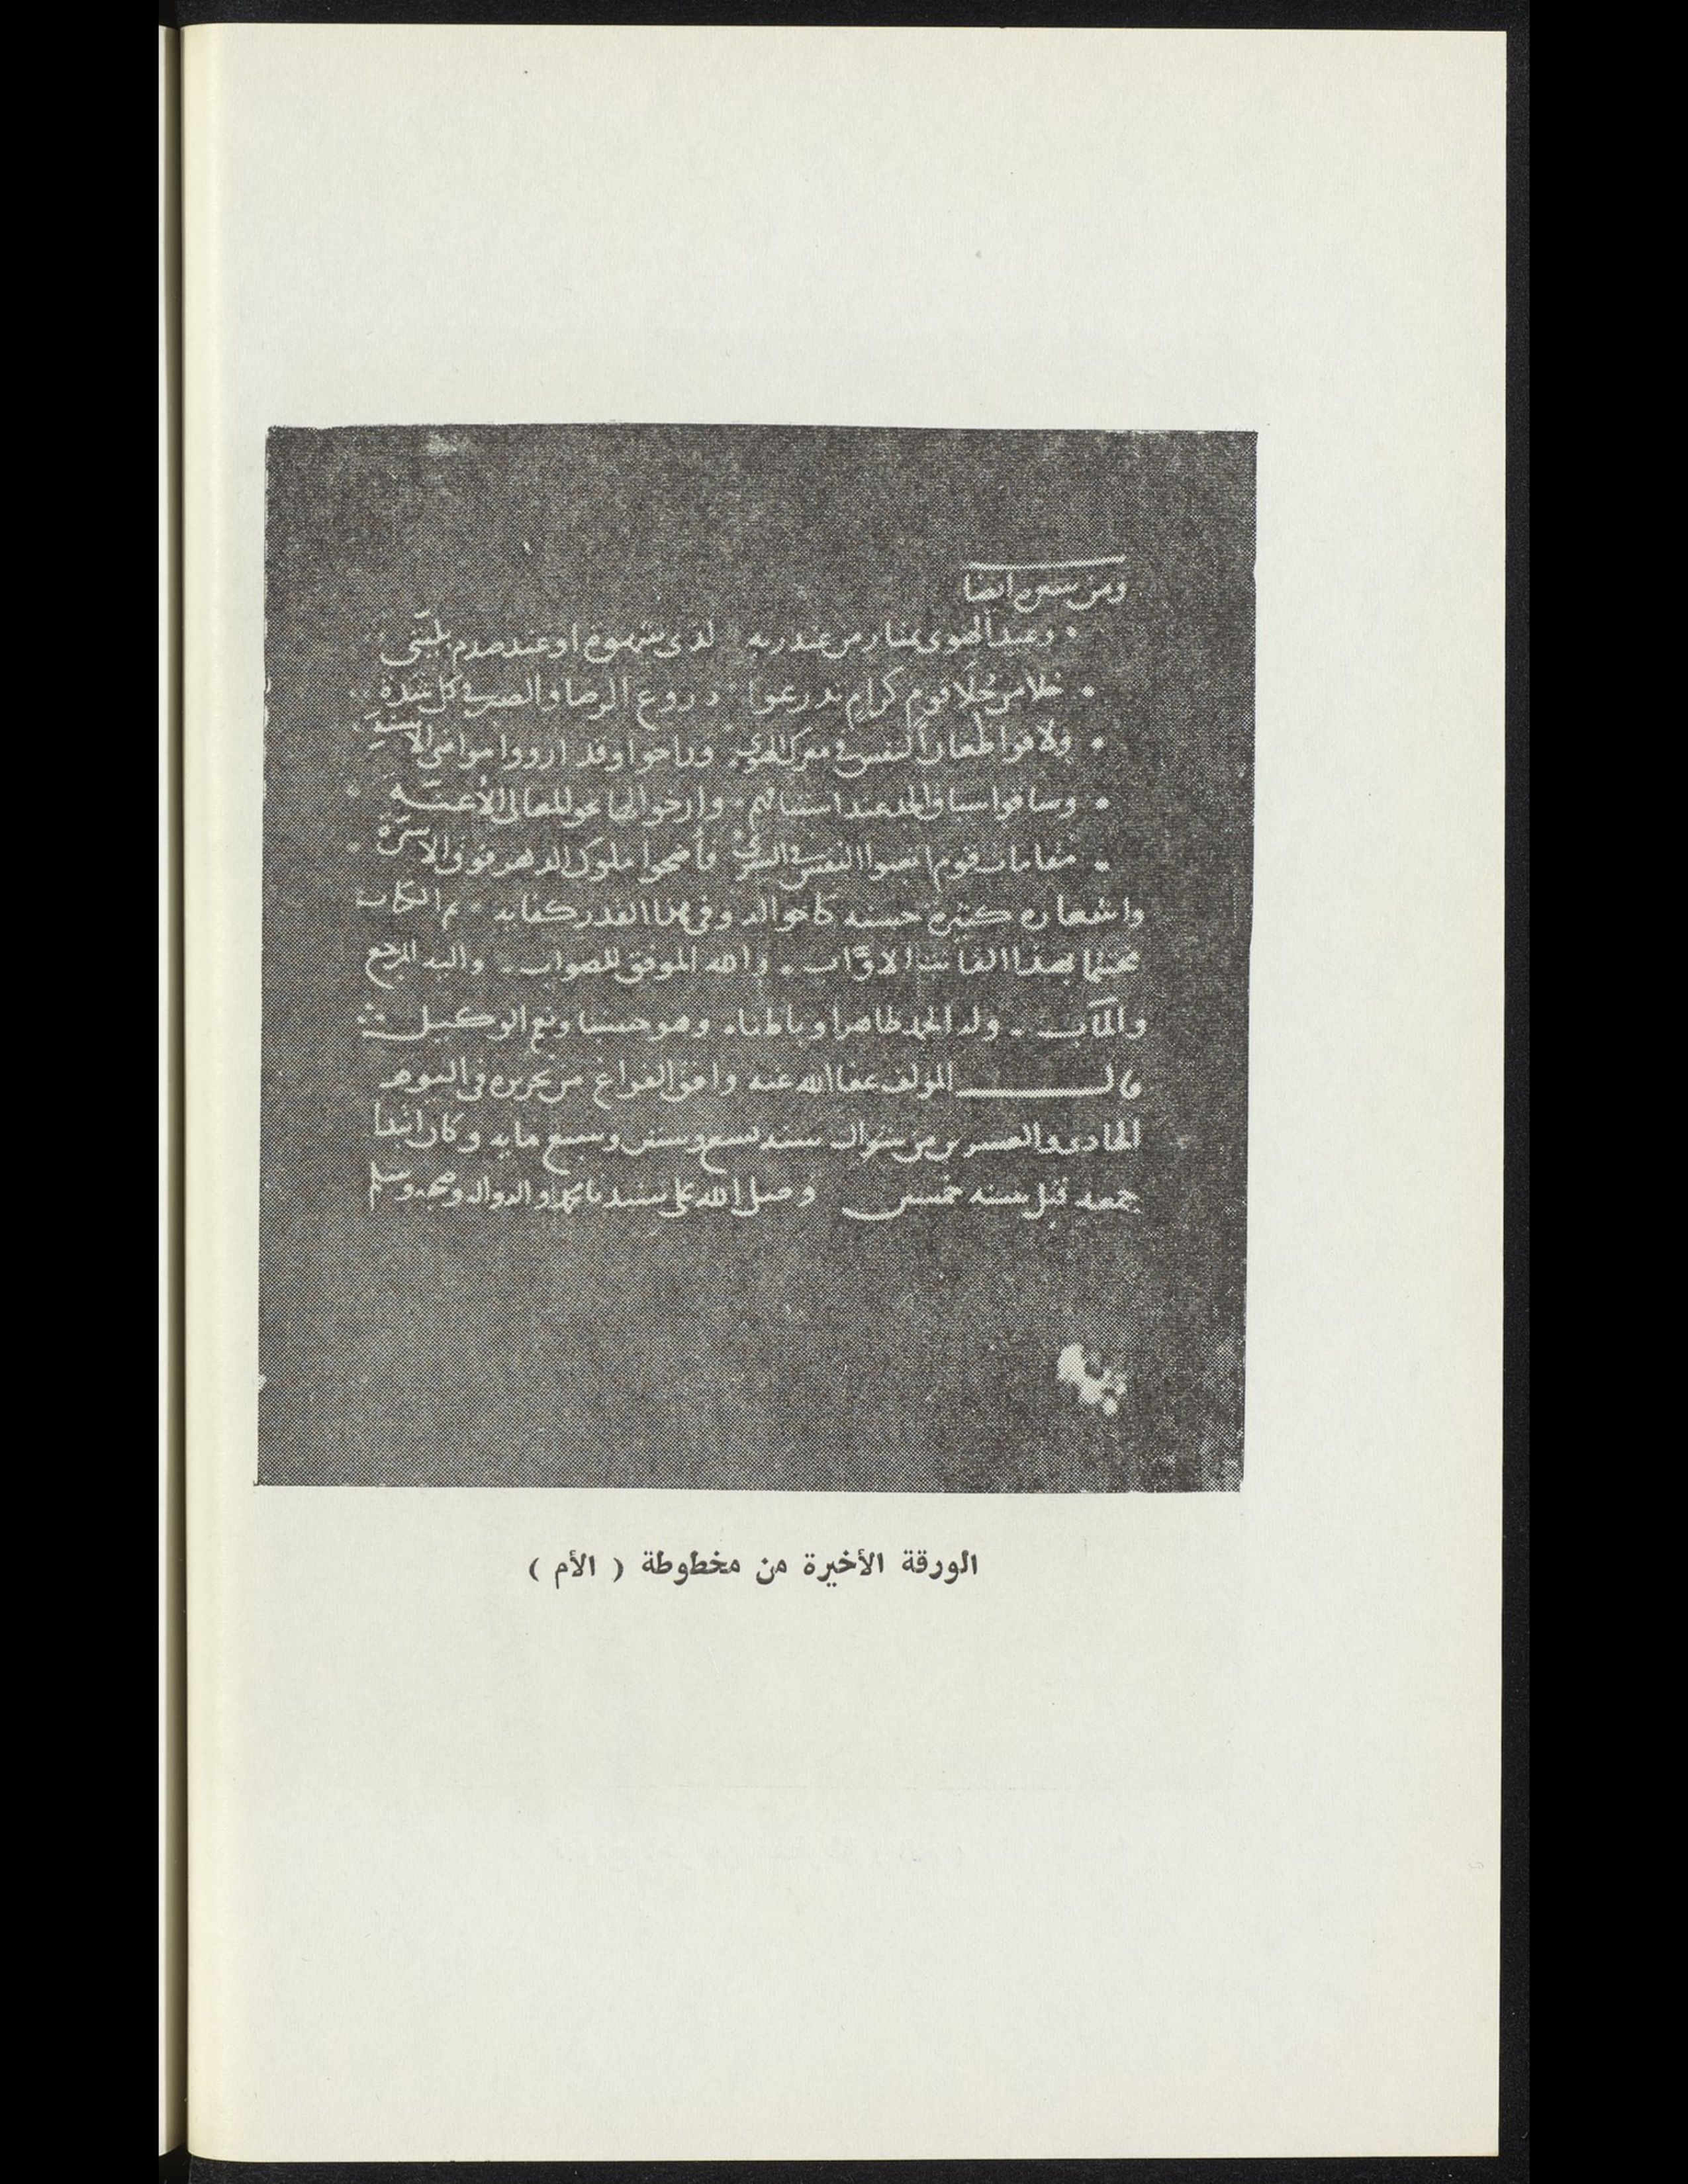 ومن شعره ايضا
وعبد الهوى يمتاز من عبد ربه لدى شهوة او عند صدم بليتى
خلا من حُلا قوم كرام تدرعوا دروع الرضا والصبر فى كل شدة
ولاقوا طعان النفس فى معرك الهوى وراحوا وقد ارووا مواضى الاسنة
وساقوا سياق الجد عند استباقهم وارخوا لها نحو المعالى الأعنــة
مقامات قوم اتعبوا النفس فى السرى فأضحوا ملوك الدهر فوق الاسرة
واشعاره كثيره حسنه كاحواله وفى هذا القدر كفايه تم الكتاب
مختتما بهذا القانت الاوّاب والله الموفق للصواب واليه المرجع
والمآب وله الحمد ظاهرا وباطنا وهو حسبنا ونعم الوكيل
قال المولف عفا الله عنه وافق الفراغ من تحريره فى اليوم
الحادى والعشرين من شوال سنه تسع وستين وسبع مايه وكان ابتدا
جمعه قبل سنه خمسين وصلى الله على سيدنا محمد واله وصحبه وسلم
الورقة الأخيرة من مخطوطة ( الأم )